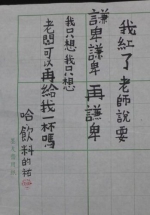 我紅了老師說要
謙卑謙卑再謙卑
我只想我只想
老闆可以再給我一杯嗎
哈飲料的